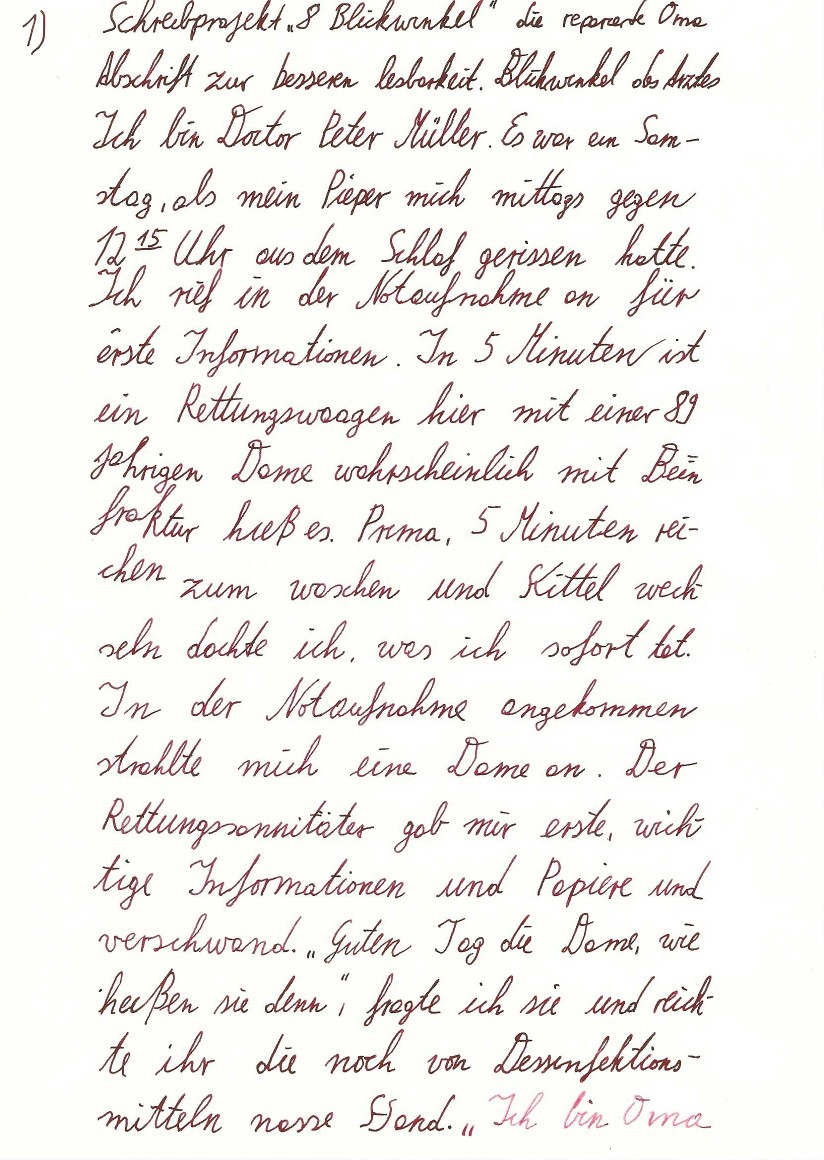 1) Schreibprojekt „8 Blickwinkel“ die reparierte Oma
Abschrift zur besseren lesbarkeit. Blickwinkel des Arztes
Ich bin Doctor Peter Müller. Es war ein Sam-
stag, als mein Pieper mich mittags gegen
12 15 Uhr aus dem Schlaf gerissen hatte.
Ich rief in der Notaufnahme an für
erste Informationen. In 5 Minuten ist
ein Rettungswaagen hier mit einer 89
Jahrigen Dame wahrscheinlich mit Bein
fraktur hieß es. Prima, 5 Minuten rei-
chen zum waschen und Kittel wech
seln dachte ich, was ich sofort tat.
In der Notaufnahme angekommen
strahlte mich eine Dame an. Der
Rettungssannitäter gab mir erste, wich
tige Informationen und Papiere und
verschwand. „Guten Tag die Dame, wie
heißen sie denn“, fragte ich sie und reich-
te ihr die noch von Dessinfektions-
mitteln nasse Hand. „Ich bin Oma